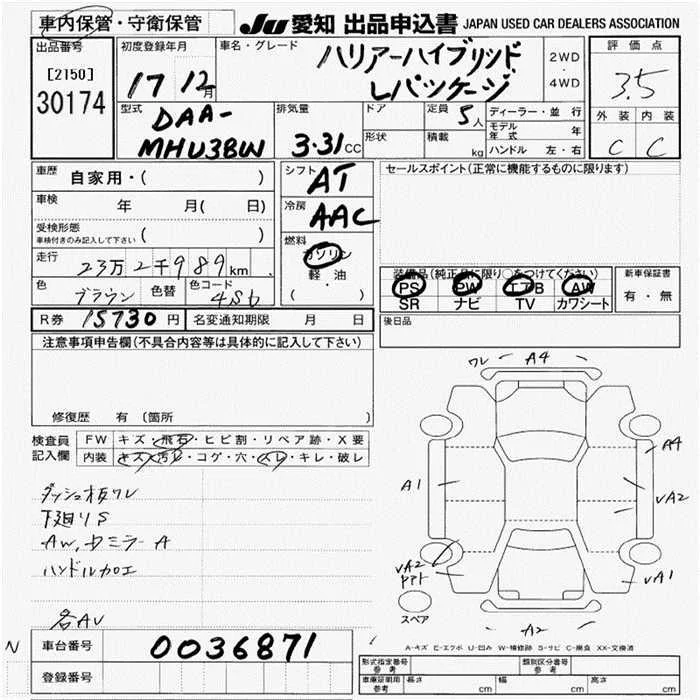 車内保管・守衛保管
JU 愛知 出品申込書 JAPAN USED CAR DEALERS ASSOCIATION
出品番号
[2150]
30174
初度登録年月
17 12月
車名・グレード
ハリアーハイブリッド
Lパッケージ
2WD
4WD
評価点
3.5
外装 内装
C C
型式
DAA-
MHU38W
排気量
3.31cc
ドア
形状
定員 5人
積載 kg
ディーラー・並行
モデル年式 年
ハンドル 左・右
車歴 自家用・( )
車検 年 月( 日)
受検形態
車検付きのみ記入して下さい ( )
走行 23万2千989km
色 ブラウン 色替 色コード 4S6
R券 15730円 名変通知期限 月 日
シフト AT
冷房 AAC
燃料
ガソリン
軽・油
( ・ )
セールスポイント(正常に機能するものに限ります)
装備品(純正品に限り○をつけてください)
PS PW エアB AW
SR ナビ TV カワシート
新車保証書
有・無
後日品
注意事項申告欄(不具合内容等は具体的に記入して下さい)
修復歴 有(箇所
検査員記入欄
FW キズ・飛石・ヒビ割・リペア跡・X要
内装 キズ・汚レ・コゲ・穴・スレ・キレ・破レ
ダッシュ板ワレ
下廻りS
AW,ドミラーA
ハンドルカロエ
各AU
ワレ A4
A4
A1
UA2
UA2
UA1
A2
スペア
A-キズ E-エクボ U-凹み W-補修跡 S-サビ C-腐食 XX-交換済
N
車台番号 0036871
登録番号
形式指定番号
参考
類別区分番号
参考
車庫証明用
参考
長さ cm 幅 cm 高さ cm